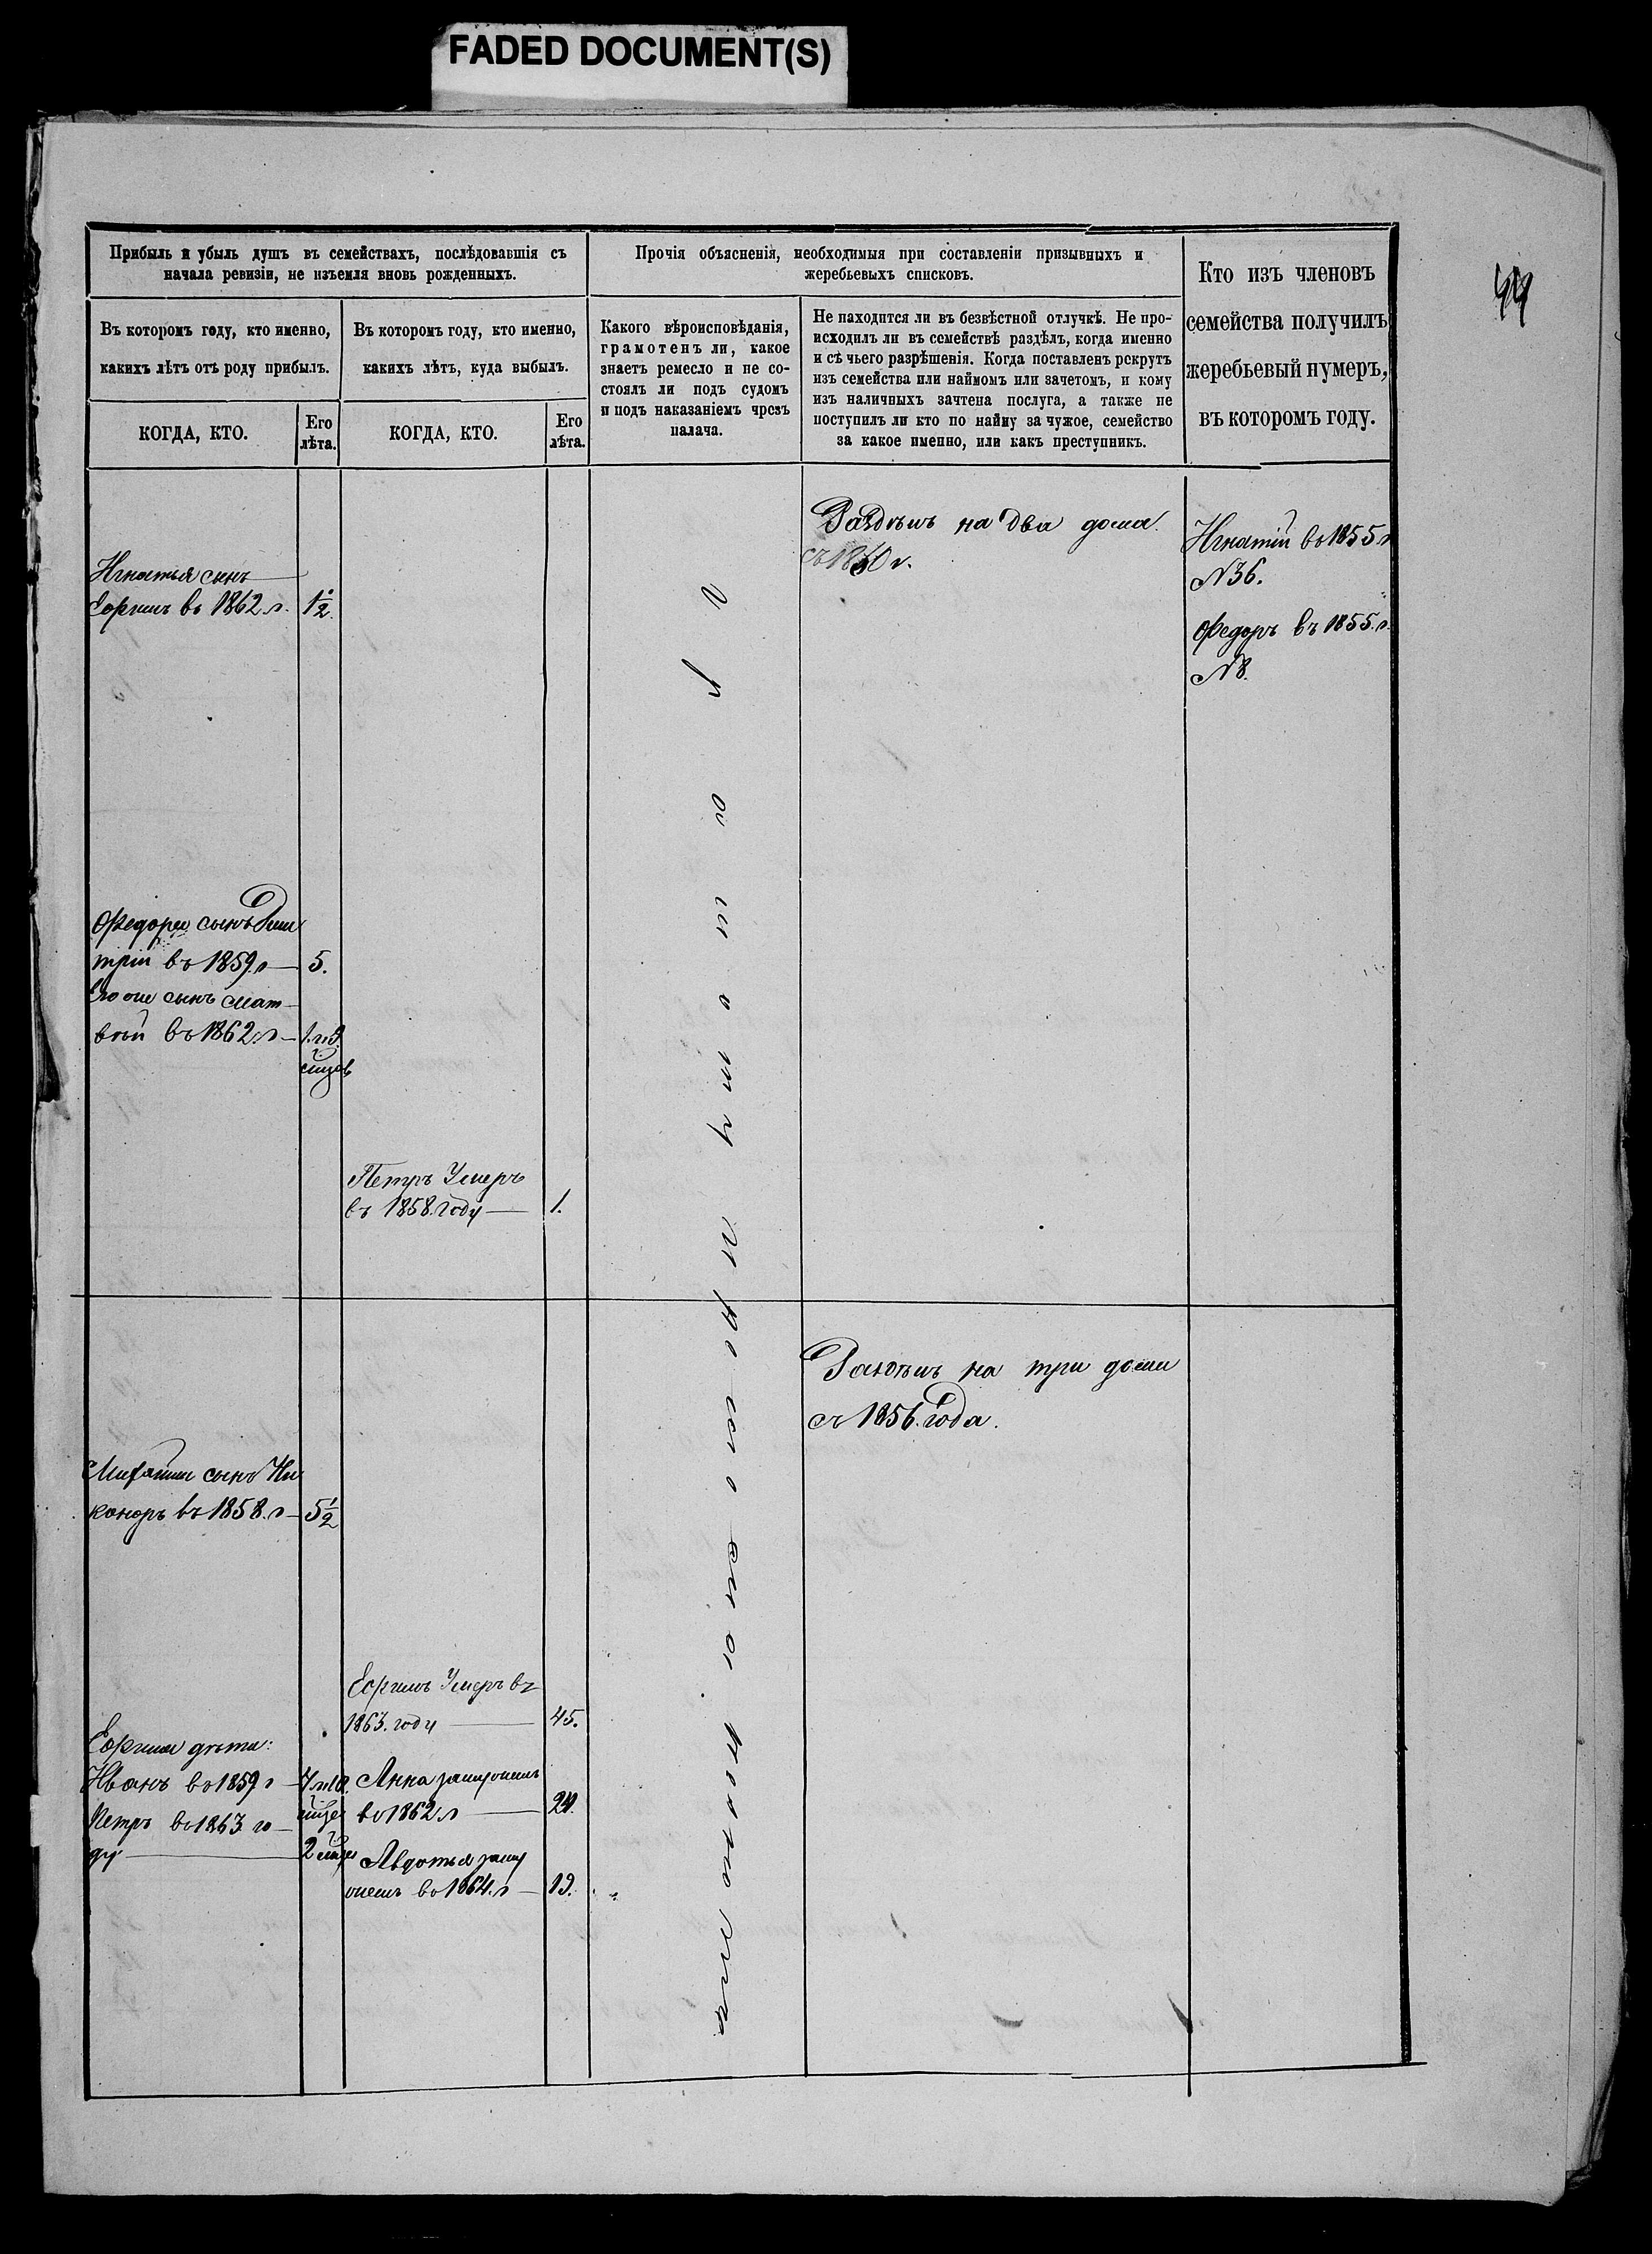 FADED DOCUMENT(S)
44
Прибыль и убыль душъ въ семействахъ, послѣдовавшія съ
начала ревизіи, не изъемля вновь рожденныхъ.
Въ которомъ году, кто именно,
какихъ лѣтъ отъ роду прибылъ.
КОГДА, КТО.
Его
лѣта.
Въ которомъ году, кто именно,
какихъ лѣтъ, куда выбылъ.
КОГДА, КТО.
Его
лѣта.
Прочія объясненія, необходимыя при составленіи призывныхъ и
жеребьевыхъ списковъ.
Какого вѣроисповѣданія,
грамотенъ ли, какое
знаетъ ремесло и не со-
стоялъ ли подъ судомъ
и подъ наказаніемъ чрезъ
палача.
Не находится ли въ безвѣстной отлучкѣ. Не про-
исходилъ ли въ семействѣ раздѣлъ, когда именно
и съ чьего разрѣшенія. Когда поставленъ рекрутъ
изъ семейства или наймомъ или зачетомъ, и кому
изъ наличныхъ зачтена послуга, а также не
поступилъ ли кто по найму за чужое, семейство
за какое именно, или какъ преступникъ.
Кто изъ членовъ
семейства получилъ
жеребьевый нумеръ,
въ которомъ году.
Игнатья сынъ
Ефимъ въ 1862 г. 1½
Раздѣлъ на два дома
съ 1850 г.
Игнатій въ 1855 г
N 36.
Федоръ въ 1855. г.
N 8.
Федора сынъ Дми
трій въ 1859 г 5.
Его же сынъ Мат-
вѣй въ 1862 г 1. и 9.
мѣсяцев
Петръ Умеръ
въ 1858. году 1.
Раздѣлъ на три дома
съ 1856. года.
Михайлы сынъ Ни
каноръ въ 1858. г 5½
Ефимъ Умеръ въ
1863. году 45.
Ефима дѣти:
Иванъ въ 1859 г 4 и 10.
Петръ въ 1863 го-
ду 2
Анна замужемъ
въ 1862 г 20.
Авдотья заму
жемъ въ 1864. г 19.